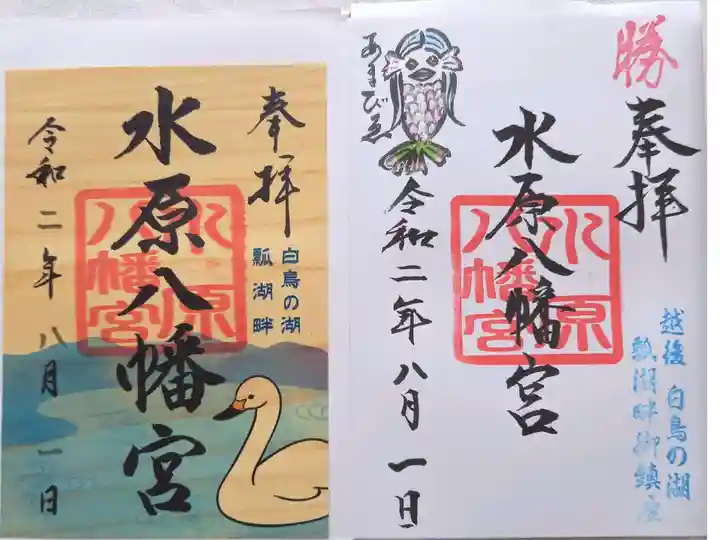 奉拝
白鳥の湖
瓢湖畔
水原八幡宮
水原八幡宮
令和二年八月一日
勝
奉拝
越後 白鳥の湖
瓢湖畔御鎮座
水原八幡宮
水原八幡宮
あまびゑ
令和二年八月一日